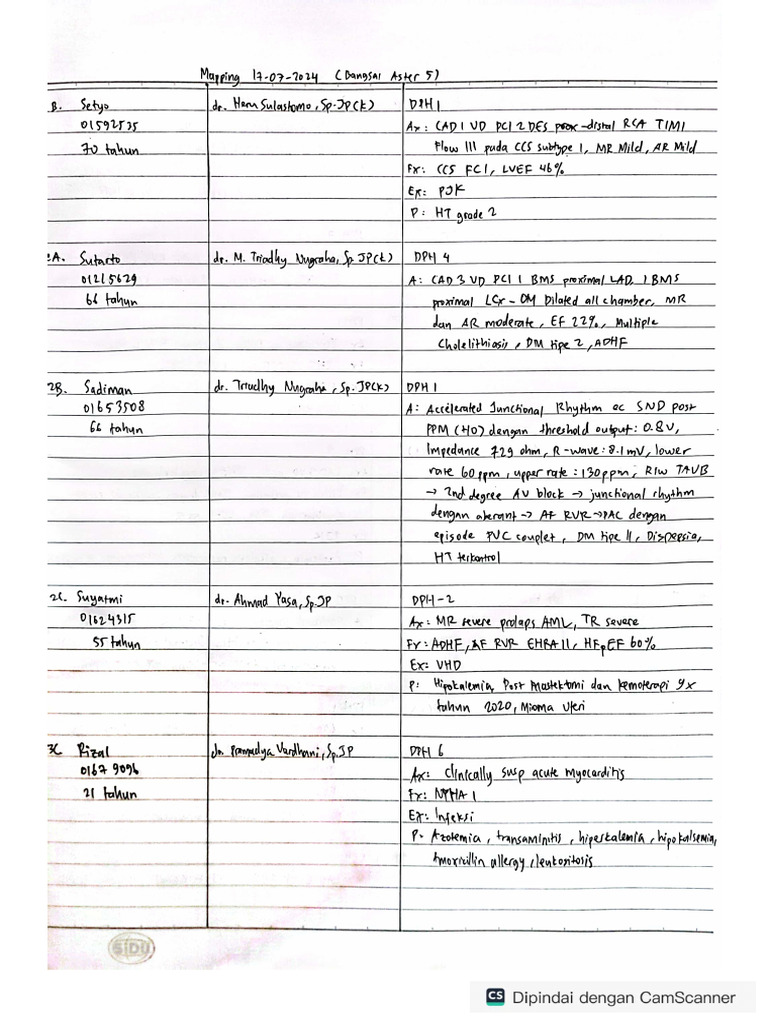 Mapping 17-07-2024 (Bangsal Aster 5)
B. Setyo
dr. Heru Sulastomo, Sp.JP(K)
DPH 1
01592535
Ax: CAD 1 VD PCI 2 DES prox-distal RCA TIMI
70 tahun
Flow III pada CCS subtype 1, MR Mild, AR Mild
Fx: CCS FC I, LVEF 46%
Ex: PJK
P: HT grade 2
2A. Sutarto
dr. M. Triadhy Nugraha, Sp.JP(K)
DPH 4
01215629
A: CAD 3 VD PCI 1 BMS proximal LAD, 1 BMS
66 tahun
proximal LCx-OM Dilated all chamber, MR
dan AR moderate, EF 22%, Multiple
Cholelithiasis, DM tipe 2, ADHF
2B. Sadiman
dr. Triadhy Nugraha, Sp.JP(K)
DPH 1
01653508
A: Accelerated Junctional Rhythm ec SND post
66 tahun
PPM (H0) dengan threshold output: 0.8V,
Impedance 729 ohm, R-wave: 8.1 mV, lower
rate 60 ppm, upper rate: 130 ppm, RIW TAVB
→ 2nd degree AV block → junctional rhythm
dengan aberant → AF RVR → PAC dengan
episode PVC couplet, DM tipe II, Dispepsia,
HT terkontrol
2C. Suyatmi
dr. Ahmad Yasa, Sp.JP
DPH-2
01624315
Ax: MR severe prolaps AML, TR severe
55 tahun
Fx: ADHF, AF RVR EHRA II, HFpEF 60%
Ex: VHD
P: Hipokalemia, Post Mastektomi dan kemoterapi 9x
tahun 2020, Mioma Uteri
3C Rizal
dr. Pramadya Vardhani, Sp.JP
DPH 6
01679096
Ax: Clinically susp acute myocarditis
21 tahun
Fx: NYHA 1
Ex: Infeksi
P: Azotemia, transaminitis, hiperkalemia, hipokalsemia,
Amoxicillin allergy, leukositosis
SIDU
CS Dipindai dengan CamScanner